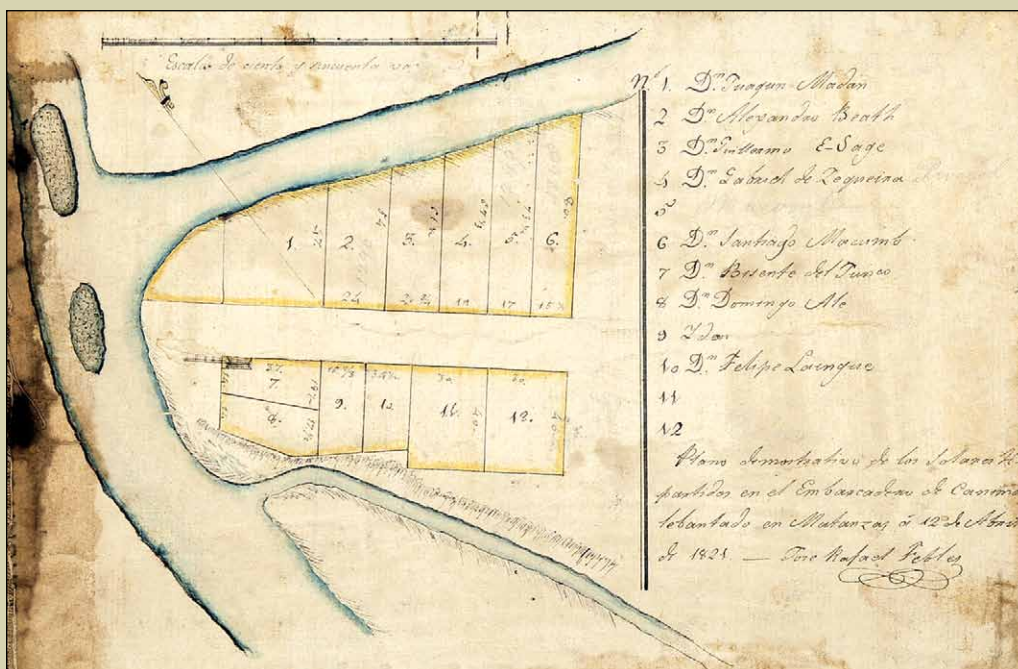 Escala de ciento y cincuenta var
N.º 1. D.n Juaquin Madan
2 D.n Alexandro Beath
3 D.n Guillermo E-Sage
4 D.n Gabriel de Zequeira
5
6 D.n Santiago Macomb
7 D.n Bisente del Junco
8 D.n Domingo Ale
9 Ydem
10 D.n Felipe Laengue
11
12
Plano demostrativo de los Solares Re-
partidos en el Embarcadero de Canima
lebantado en Matanzas á 12 de Abril
de 1821 — Jose Rafael Febles
1. 2. 3. 4. 5. 6.
24 17
7. 9. 10. 11. 12.
8.